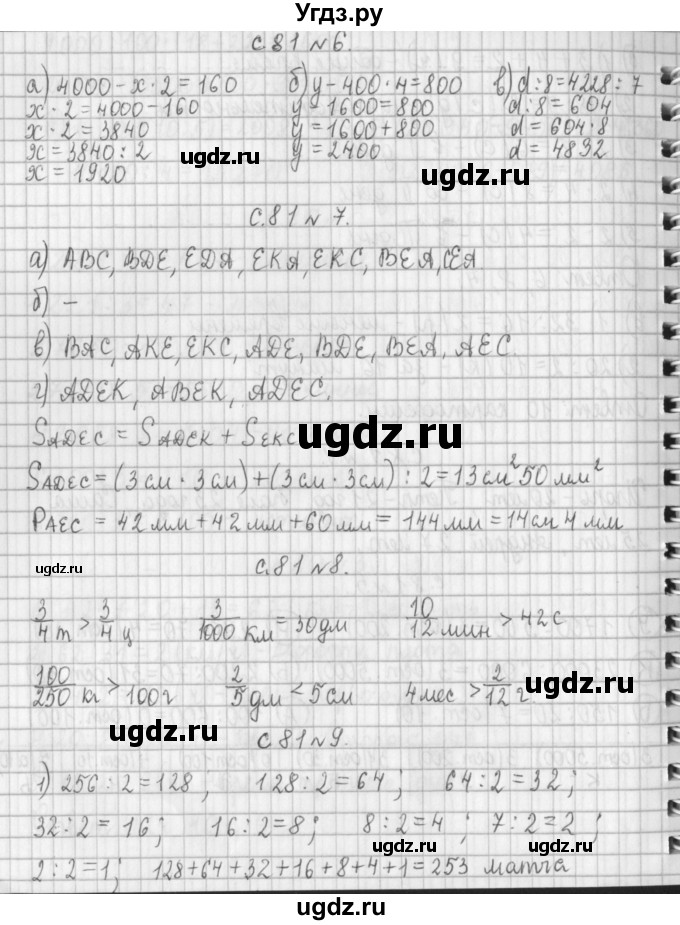 Угдз.ру
с.81 №6.
а) 4000 - x · 2 = 160 б) y - 400 · 4 = 800 в) d : 8 = 4228 : 7
x · 2 = 4000 - 160 y - 1600 = 800 d : 8 = 604
x · 2 = 3840 y = 1600 + 800 d = 604 · 8
x = 3840 : 2 y = 2400 d = 4832
x = 1920
ugdz.ru
ugdz.ru
с.81 № 7.
а) ABC, BDE, EDA, EKA, EKC, BEA, CEA
б) -
в) BAC, AKE, EKC, ADE, BDE, BEA, AEC.
г) ADEK, ABEK, ADEC.
SADEC = SADCK + SEKC
ugdz.ru
SADEC = (3 см · 3 см) + (3 см · 3 см) : 2 = 13 см² 50 мм²
PAEC = 42 мм + 42 мм + 60 мм = 144 мм = 14 см 4 мм
ugdz.ru
с.81 №8.
3/4 т > 3/4 ц 3/1000 км = 30 дм 10/12 мин > 42 с
100/250 кг > 100 г 2/5 дм < 5 см 4 мес > 2/12 г.
ugdz.ru
ugdz.ru
с 81 №9.
1) 256 : 2 = 128; 128 : 2 = 64; 64 : 2 = 32;
32 : 2 = 16; 16 : 2 = 8; 8 : 2 = 4; 7 : 2 = 2;
ugdz.ru
ugdz.ru
2 : 2 = 1; 128 + 64 + 32 + 16 + 8 + 4 + 1 = 253 матча
ugdz.ru
ugdz.ru